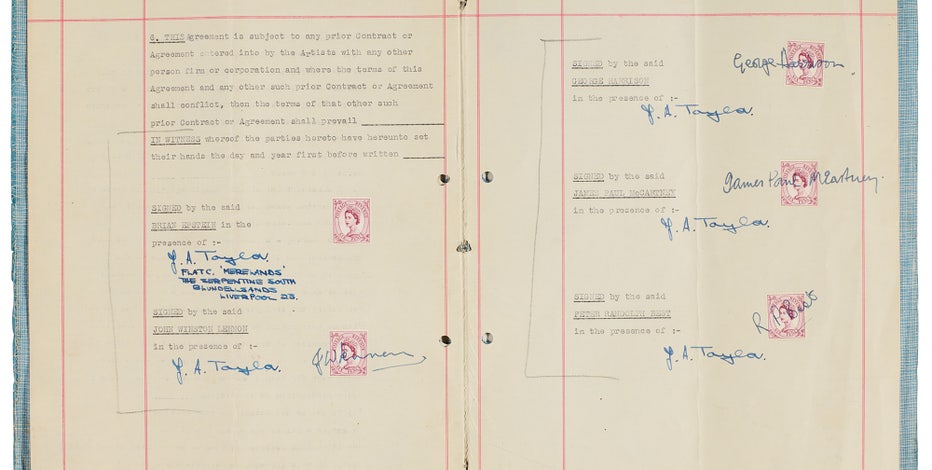 6. THIS Agreement is subject to any prior Contract or
Agreement entered into by the Artists with any other
person firm or corporation and where the terms of this
Agreement and any other such prior Contract or Agreement
shall conflict, then the terms of that other such
prior Contract or Agreement shall prevail
IN WITNESS whereof the parties hereto have hereunto set
their hands the day and year first before written
SIGNED by the said
BRIAN EPSTEIN in the
presence of :-
J. A. Taylor.
FLAT C. 'MERELANDS'
THE SERPENTINE SOUTH
BLUNDELLSANDS
LIVERPOOL 23.
SIGNED by the said
JOHN WINSTON LENNON
in the presence of :-
J. A. Taylor.
J W Lennon
SIGNED by the said
GEORGE HARRISON
in the presence of :-
George Harrison.
J. A. Taylor.
SIGNED by the said
JAMES PAUL McCARTNEY
in the presence of :-
James Paul McCartney.
J. A. Taylor.
SIGNED by the said
PETER RANDOLPH BEST
in the presence of :-
R. P. Best
J. A. Taylor.